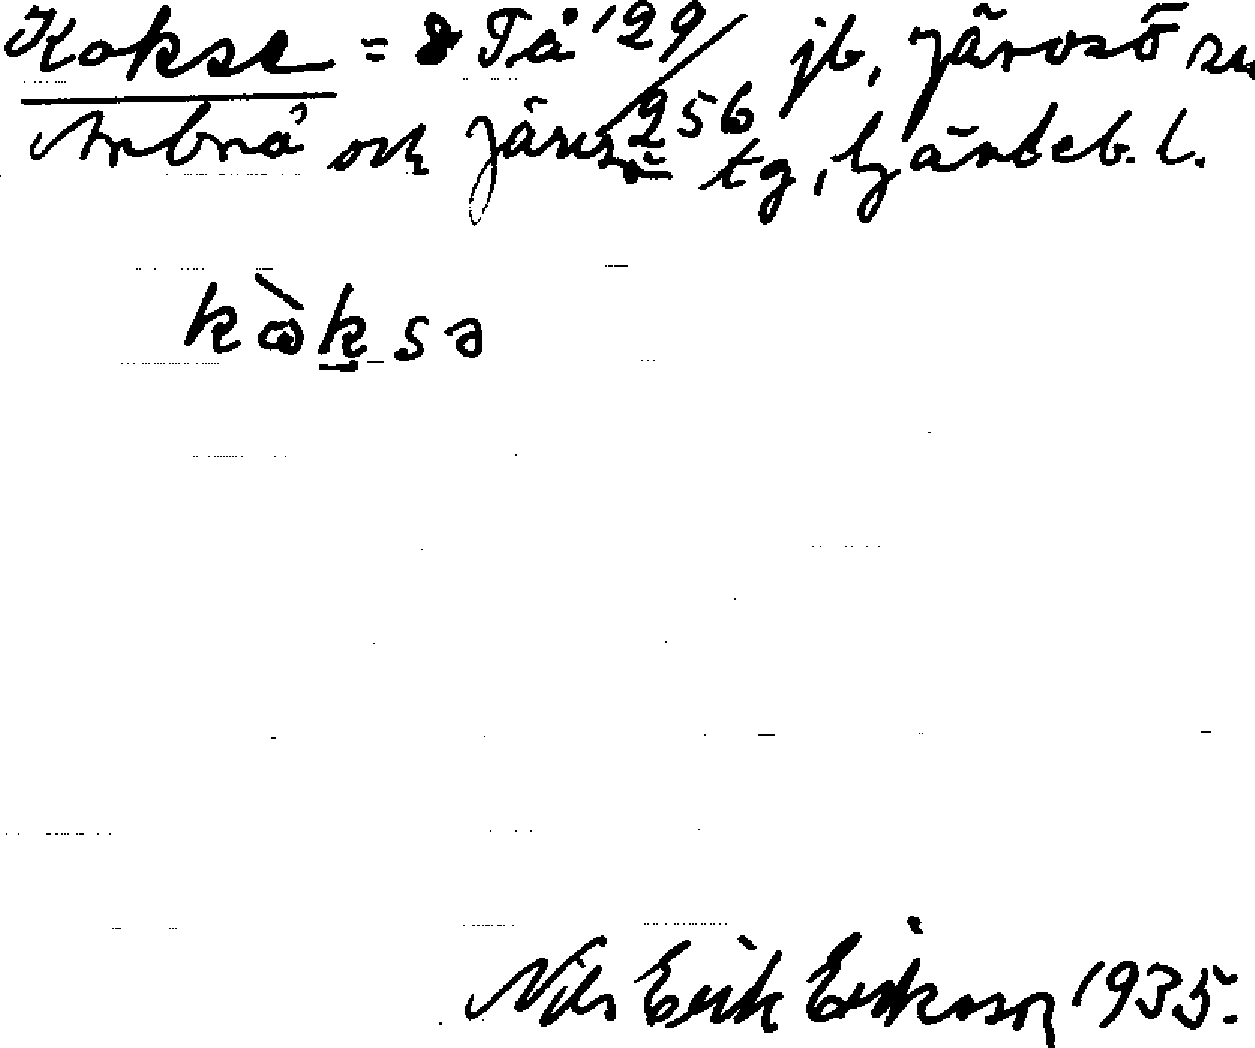 Kokse = Tå 129/256 jb, Järvsö sn
Arbrå och Järvsö tg, Gävleb. l.
kòksə
Nils Erik Eriksson 1935.